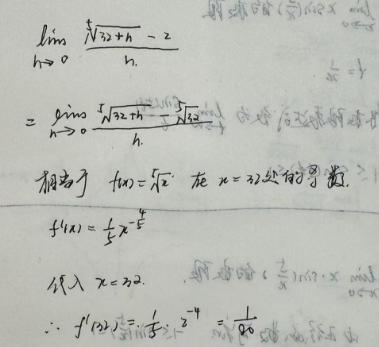 lim_{h→0} (⁵√(32+h) - 2) / h
= lim_{h→0} (⁵√(32+h) - ⁵√32) / h
相当于 f(x)=⁵√x 在 x=32处的导数.
f'(x)=1/5 x^{-4/5}
代入 x=32.
∴ f'(32)=1/5·2^{-4}=1/80